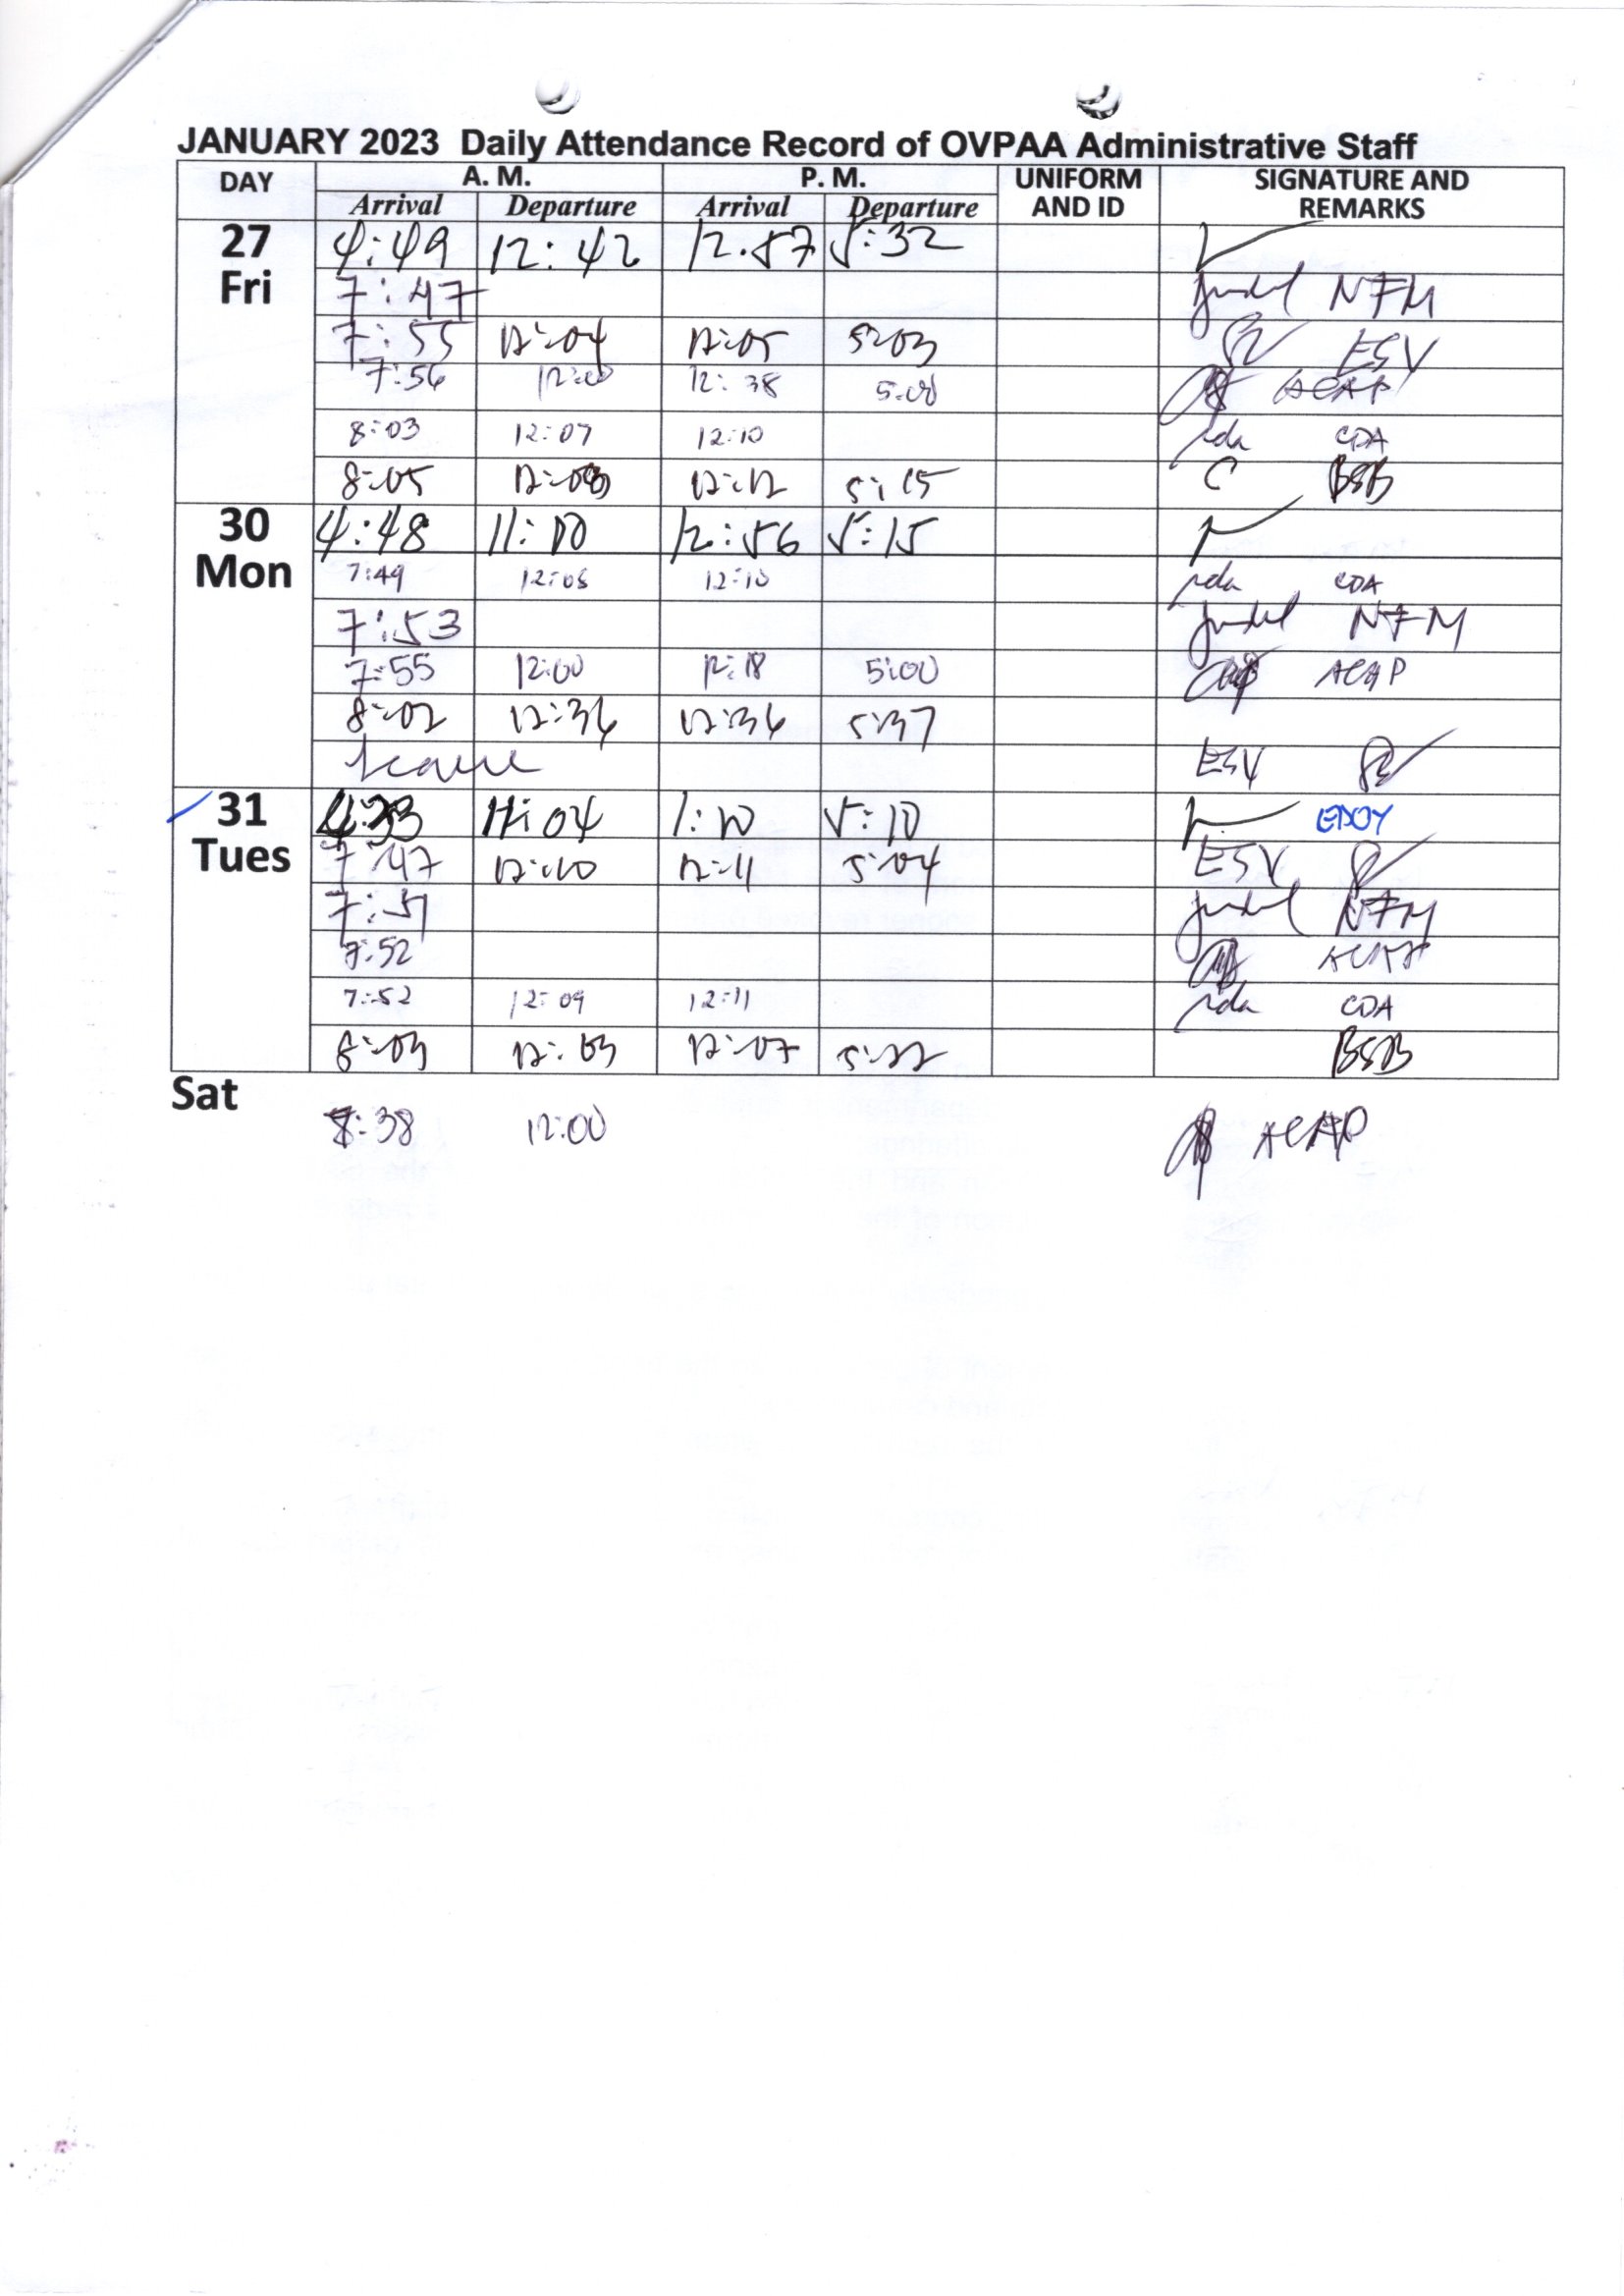 JANUARY 2023 Daily Attendance Record of OVPAA Administrative Staff
DAY A. M. P. M. UNIFORM AND ID SIGNATURE AND REMARKS
Arrival Departure Arrival Departure
27 Fri
4:49 12:42 12:57 5:32
7:47 NFM
7:55 12:04 12:05 5:03 ESV
7:56 12:00 12:38 5:00 ACAP
8:03 12:07 12:10 CDA
8:05 12:08 12:12 5:15 BSB
30 Mon
4:48 11:10 12:56 5:15
7:49 12:08 12:10 CDA
7:53 NFM
7:55 12:00 12:18 5:00 ACAP
8:02 12:36 12:36 5:37
leave ESV
31 Tues
11:04 1:10 5:10 EDOY
7:47 12:10 12:11 5:04 ESV
7:51 NFM
7:52 ACAP
7:52 12:09 12:11 CDA
8:03 12:03 12:07 5:22 BSB
Sat
8:38 12:00 ACAP